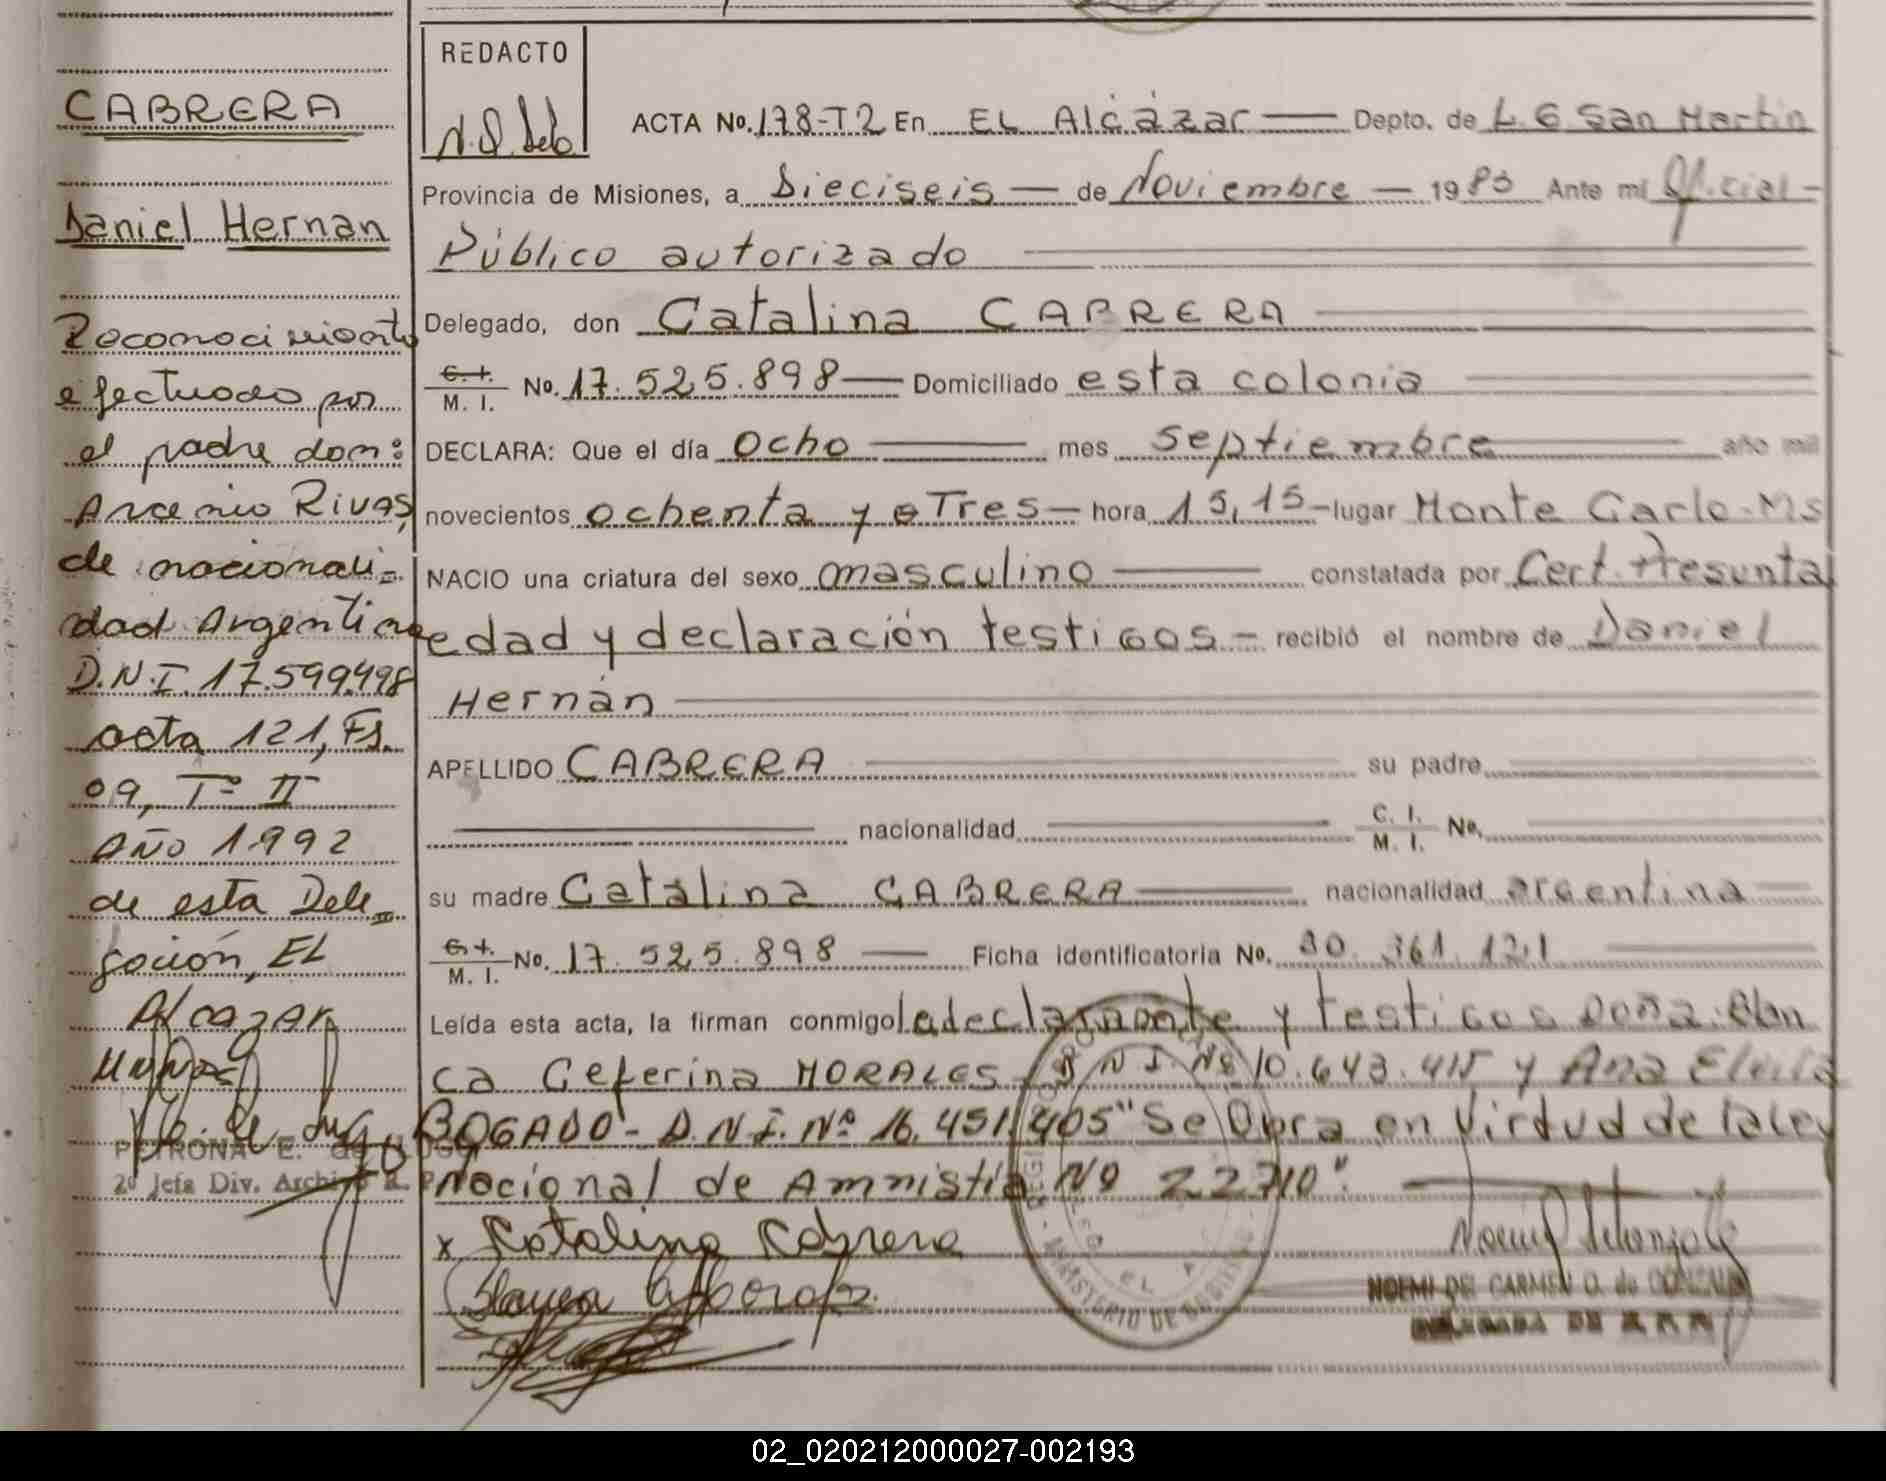 CABRERA
Daniel Hernan
Reconocimiento
efectuado por
el padre don:
Arcenio Rivas,
de nacionali-
dad Argentina
D.N.I. 17.599.498
acta 121, Fs.
09, Tº II
Año 1992
de esta Dele
gación, EL
Alcazar
PETRONA E. de
2º Jefa Div. Archivo R. P.
REDACTO
ACTA No. 178-T2 En EL Alcázar Depto. de L G San Martín
Provincia de Misiones, a Dieciseis de Noviembre 1983 Ante mi Oficial
Público autorizado
Delegado, don Catalina CABRERA
C. I. / M. I. No. 17.525.898 Domiciliado esta colonia
DECLARA: Que el día ocho mes septiembre año mil
novecientos ochenta y Tres hora 15,15 lugar Monte Carlo-Ms
NACIO una criatura del sexo masculino constatada por Cert. Presunta
edad y declaración testigos recibió el nombre de Daniel
Hernán
APELLIDO CABRERA su padre
nacionalidad C. I. / M. I. No.
su madre Catalina CABRERA nacionalidad argentina
C. I. / M. I. No. 17.525.898 Ficha identificatoria No. 30.361.121
Leída esta acta, la firman conmigo la declarante y testigos Doña: Blan
ca Ceferina MORALES D N I. Nº 10.643.415 y Ana Elvira
BOGADO - D.N.I. Nº 16.451.405 "Se Obra en Virtud de la Ley
Nacional de Amnistía Nº 22710".
x Catalina Cabrera
NOEMI DEL CARMEN O. de GONZALEZ
MINISTERIO DE GOBIERNO
02_020212000027-002193